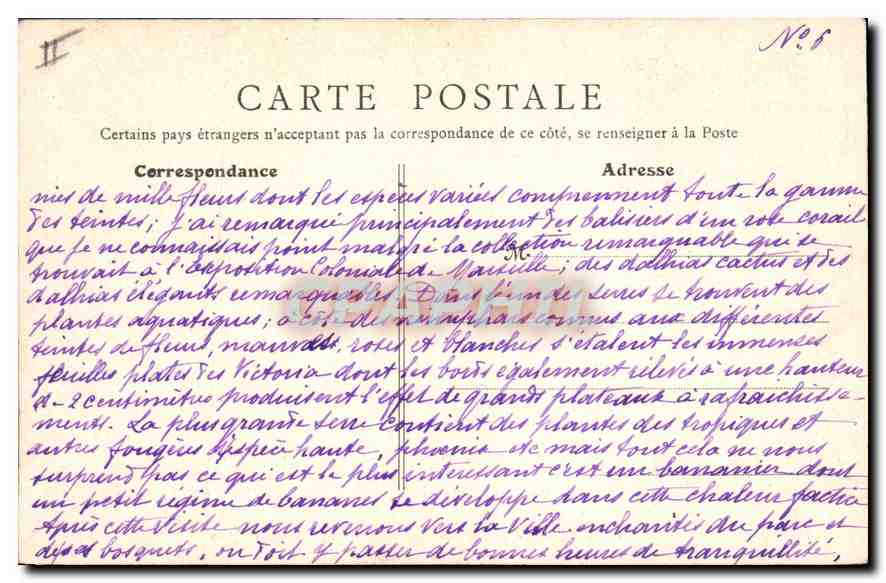 II
No. 6
CARTE POSTALE
Certains pays étrangers n'acceptant pas la correspondance de ce côté, se renseigner à la Poste
Correspondance
Adresse
M
nies de mille fleurs dont les espèces variées comprennent toute la gamme
des teintes; j'ai remarqué principalement des balisiers d'un rose corail
que je ne connaissais point malgré la collection remarquable qui se
trouvait à l'Exposition Coloniale de Marseille; des dalhias cactus et des
dalhias élégants remarquables. Dans l'une des serres se trouvent des
plantes aquatiques; à côté de connus aux différentes
teintes de fleurs, mauves, roses et blanches s'étalent les immenses
feuilles plates des Victoria dont les bords également relevés à une hauteur
de 2 centimètres produisent l'effet de grands plateaux à rafraichisse-
ments. La plus grande serre contient des plantes des tropiques et
autres fougères d'espèce haute, phoenix etc mais tout cela ne nous
surprend pas ce qui est le plus intéressant c'est un bananier dont
un petit régime de bananes se développe dans cette chaleur factice
Après cette visite nous revenons vers la Ville enchantés du parc et
de ses bosquets, on doit y passer de bonnes heures de tranquillité.